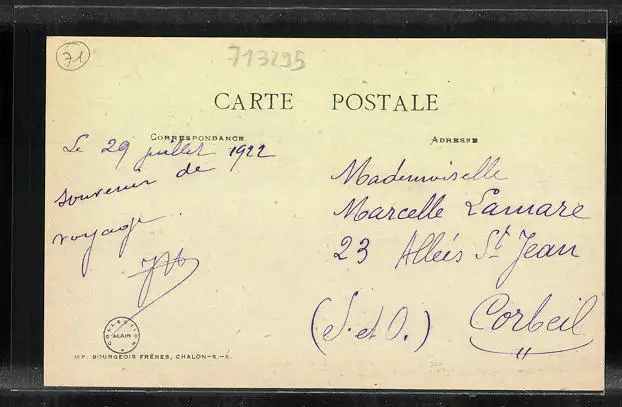 71
713295
CARTE POSTALE
CORRESPONDANCE
ADRESSE
Le 29 juillet 1922
souvenir de
voyage.
Mademoiselle
Marcelle Lamare
23 Allées St Jean
(S. et O.) Corbeil
COLLECTION
ALAIN
IMP. BOURGEOIS FRÈRES, CHALON-S.-S.